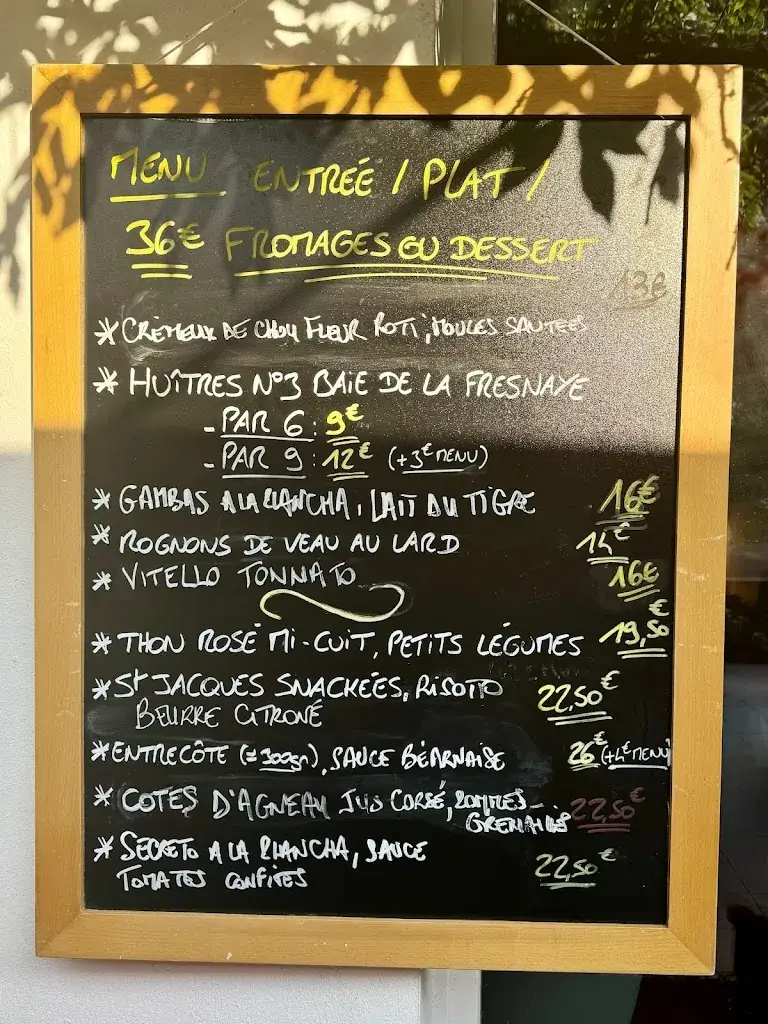 MENU ENTRÉE / PLAT /
36€ FROMAGES OU DESSERT
13€
* CRÉMEUX DE CHOU FLEUR ROTI, MOULES SAUTEES
* HUÎTRES N°3 BAIE DE LA FRESNAYE
- PAR 6 : 9€
- PAR 9 : 12€ (+3€ MENU)
* GAMBAS A LA PLANCHA, LAIT DU TIGRE 16€
* ROGNONS DE VEAU AU LARD 14€
* VITELLO TONNATO 16€
* THON ROSÉ MI-CUIT, PETITS LÉGUMES 19,50€
* St JACQUES SNACKÉES, RISOTTO 22,50€
BEURRE CITRONÉ
* ENTRECÔTE (≈300gr), SAUCE BÉARNAISE 26€ (+4€ MENU)
* COTES D'AGNEAU JUS CORSÉ, POMMES 22,50€
GRENAILLES
* SECRETO A LA PLANCHA, SAUCE 22,50€
TOMATES CONFITES